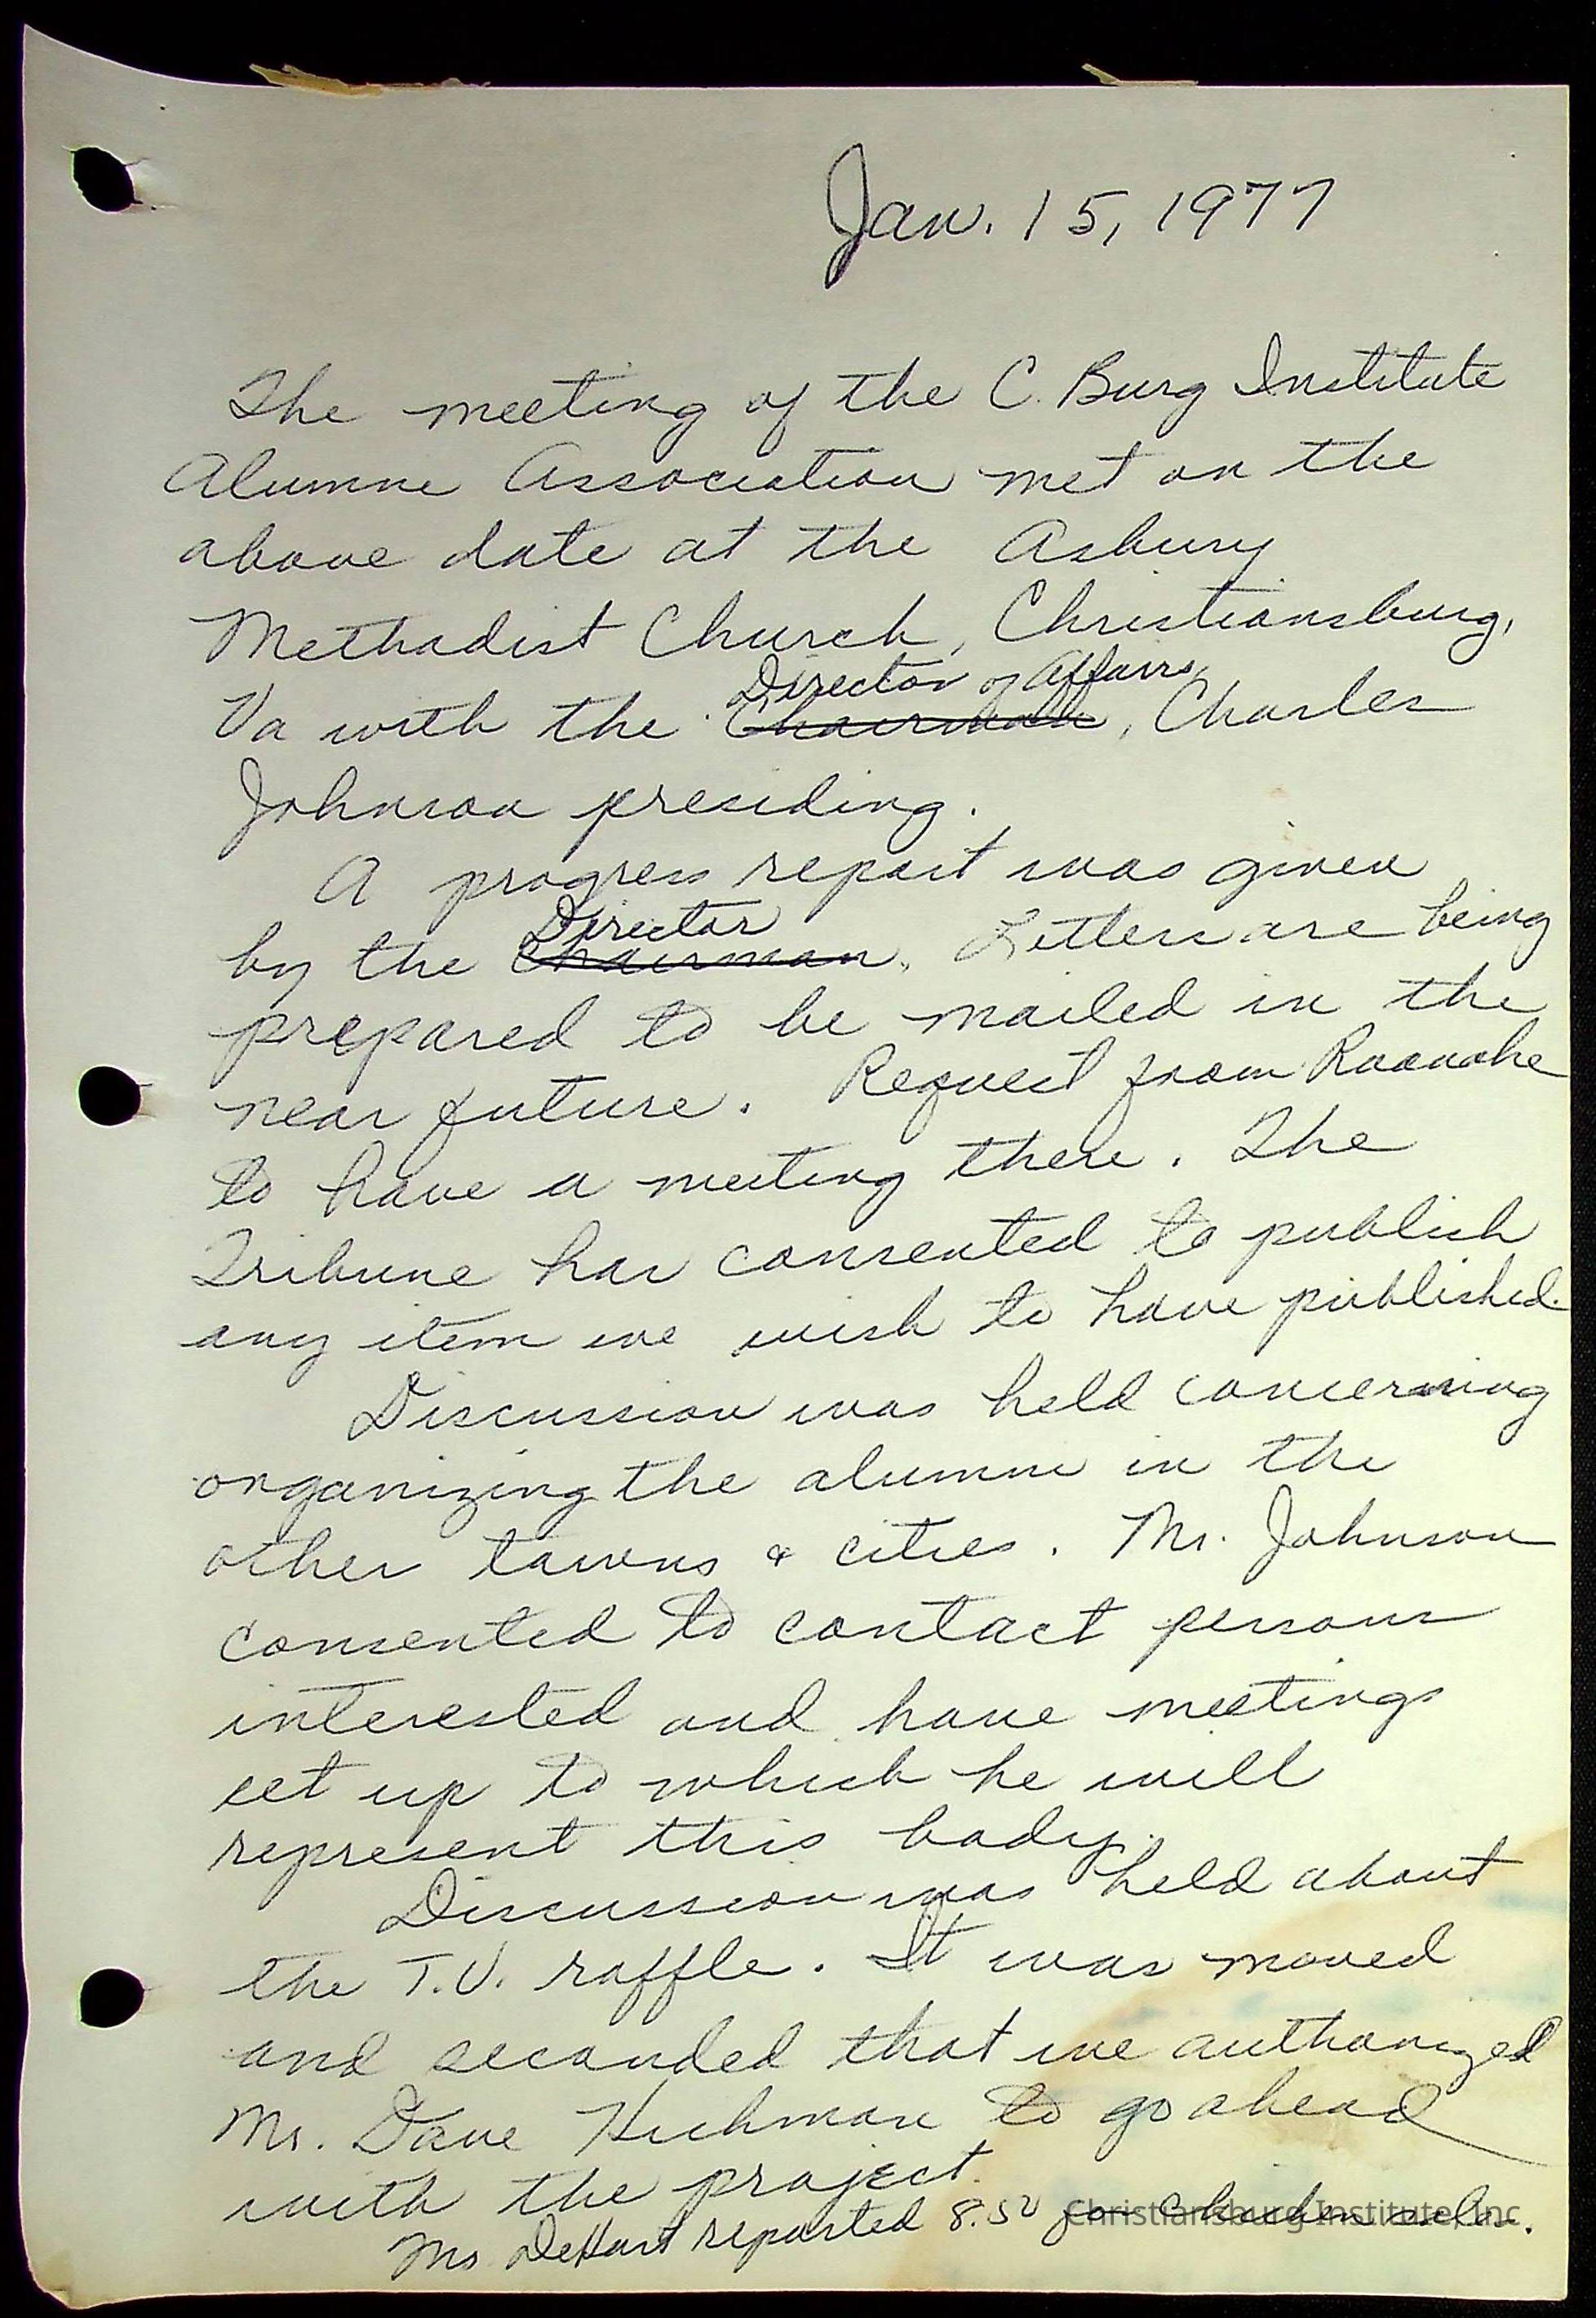 Jan. 15, 1977
The meeting of the C. Burg Institute
Alumni Association met on the
above date at the Asbury
Methodist Church, Christiansburg,
Director of Affairs
Va with the Chairman, Charles
Johnson presiding.
A progress report was given
Director
by the Chairman. Letters are being
prepared to be mailed in the
near future. Request from Roanoke
to have a meeting there. The
Tribune has consented to publish
any item we wish to have published.
Discussion was held concerning
organizing the alumni in the
other towns & cities. Mr. Johnson
consented to contact persons
interested and have meetings
set up to which he will
represent this body.
Discussion was held about
the T.V. raffle. It was moved
and seconded that we authorized
Mr. Dave Hickman to go ahead
with the project.
Ms DeHart reported 8.50 for
Christiansburg Institute, Inc